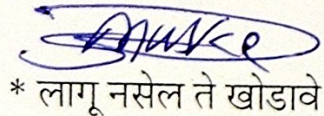 * लागू नसेल ते खोडावे